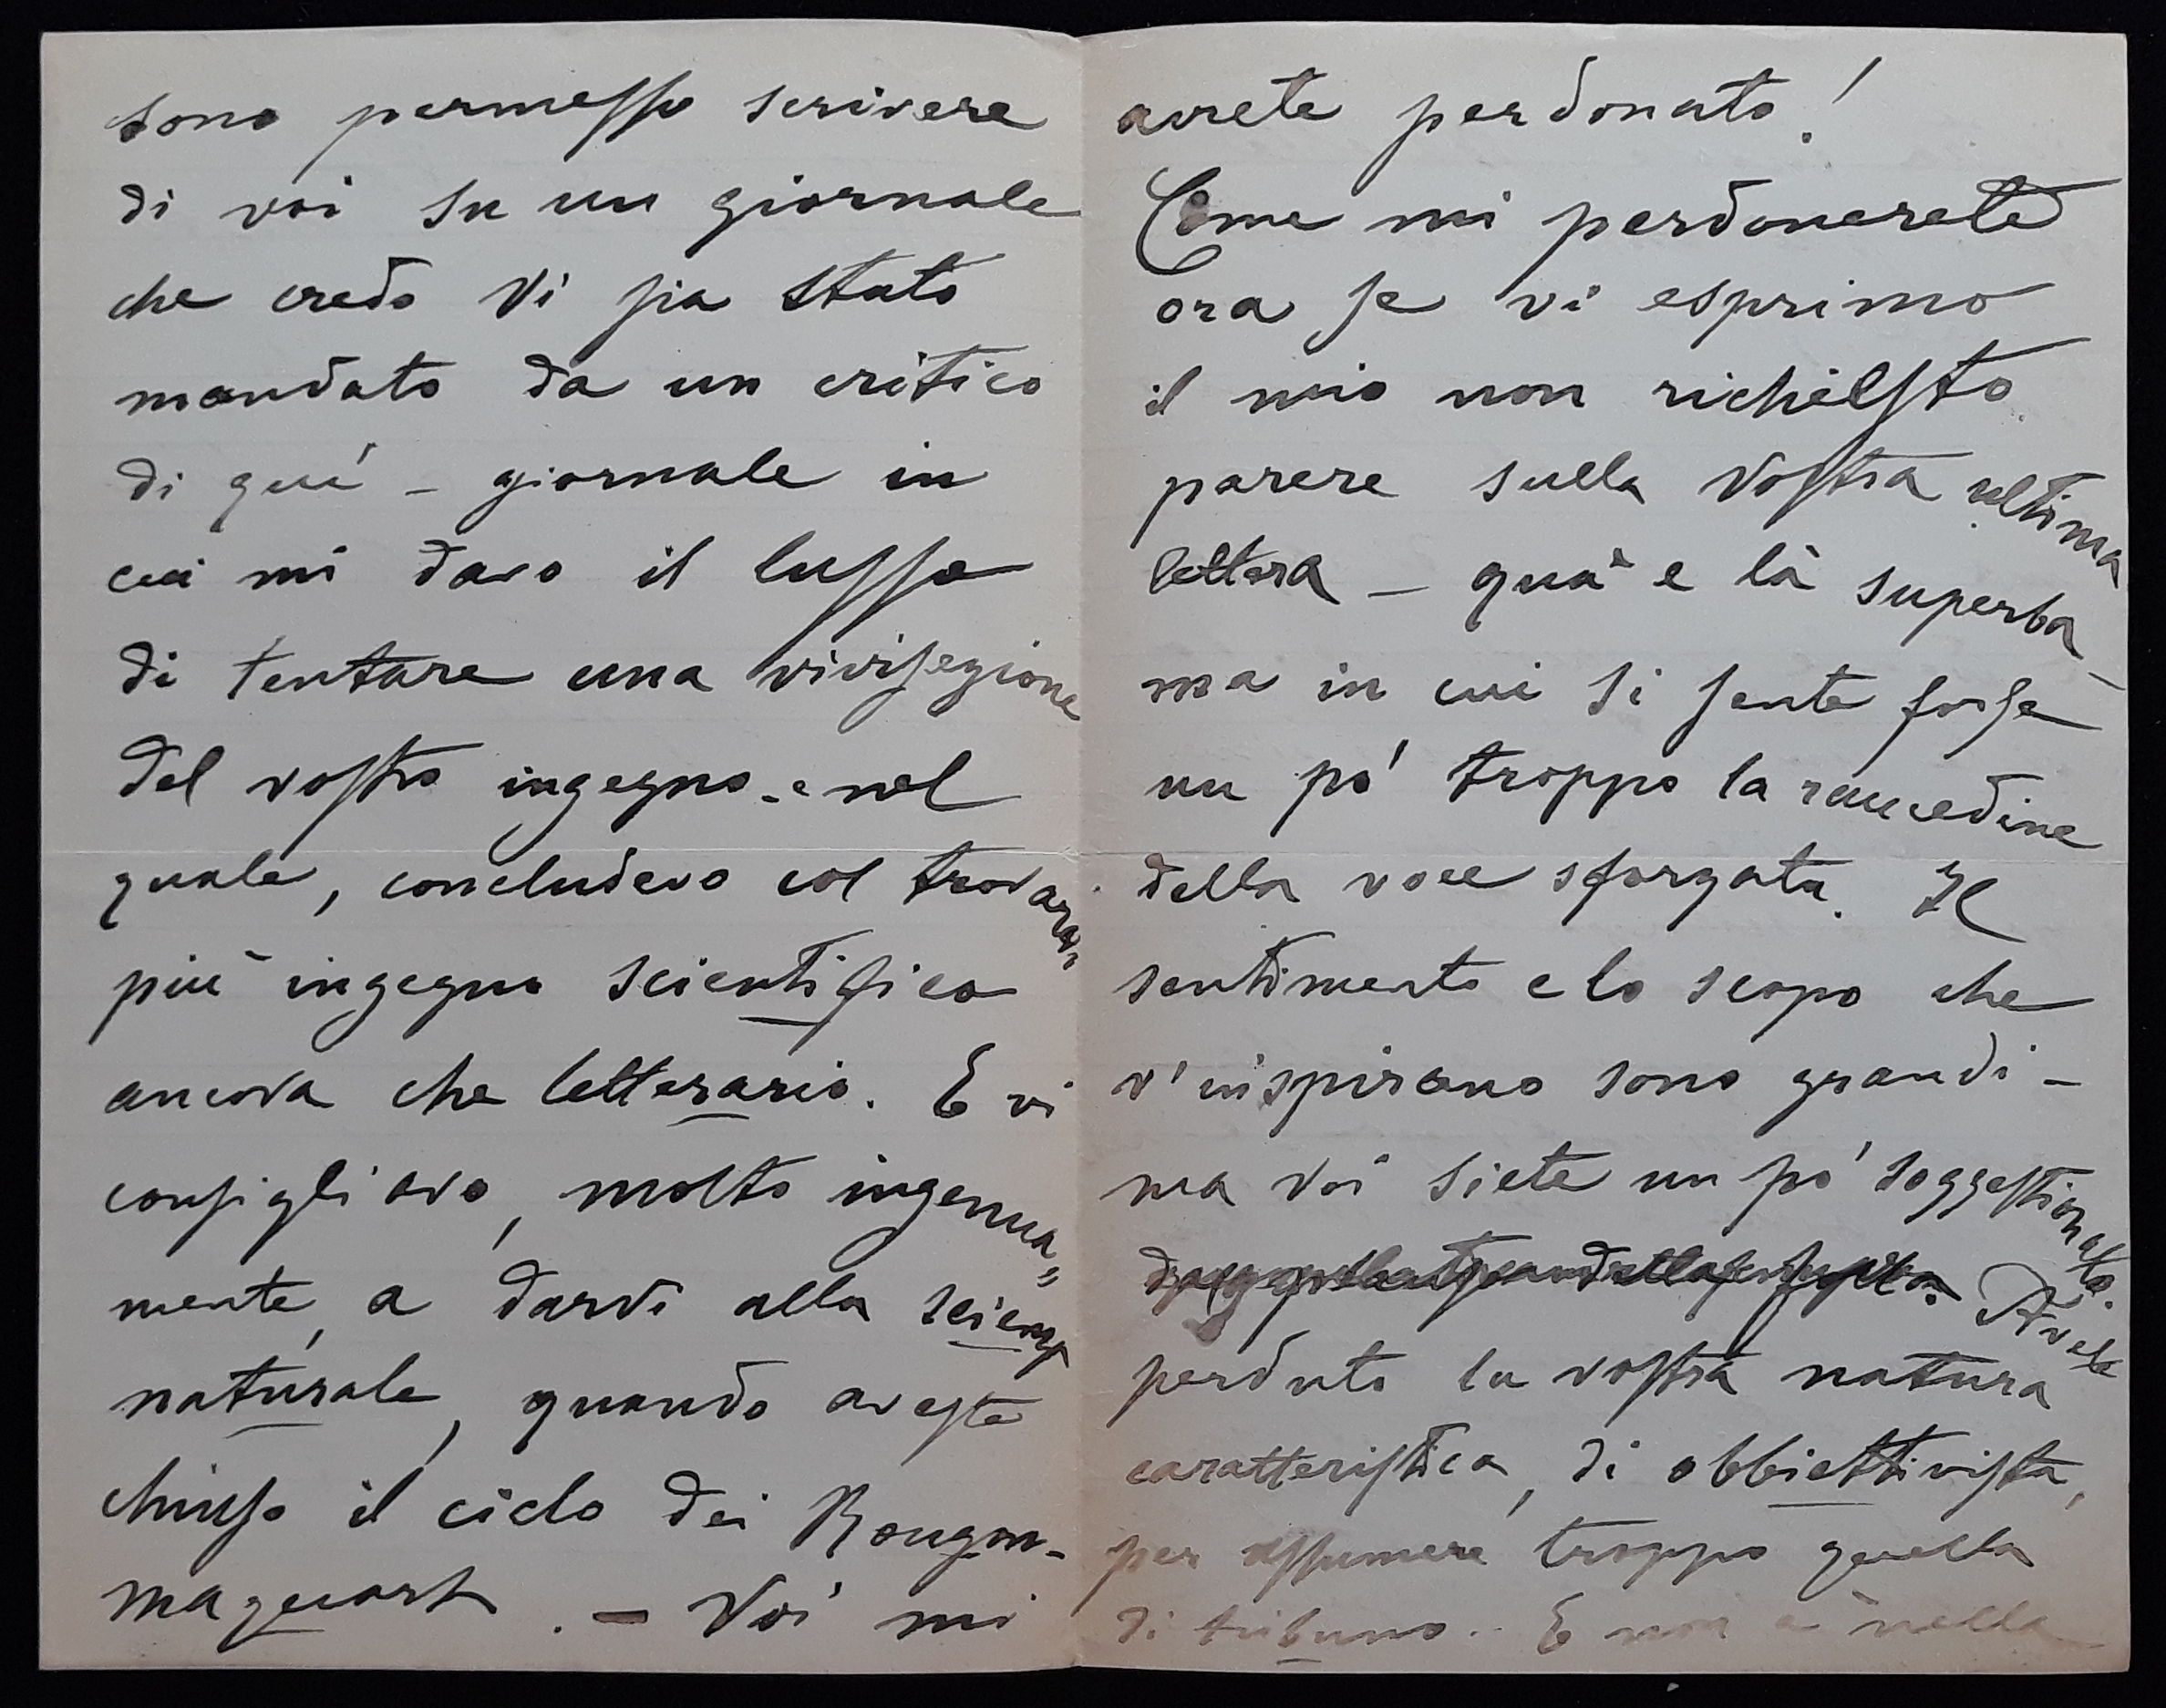 sono permesso scrivere
di voi su un giornale
che credo vi sia stato
mandato da un critico
di quì – giornale in
cui mi davo il lusso
di tentare una vivisezione
del vostro ingegno – e nel
quale, concludevo col trovarvi
più ingegno scientifico
ancora che letterario. E vi
consigliavo, molto ingenua=
mente, a darvi alla scienza
naturale, quando aveste
chiuso il ciclo dei Rougon-
maquart. – Voi mi
avrete perdonato!
Come mi perdonerete
ora se vi esprimo
il mio non richiesto
parere sulla vostra ultima
lettera – quà e là superba –
ma in cui si sente forse
un pò troppo la raucedine
della voce sforzata. Il
sentimento e lo scopo che
v'inspirano sono grandi –
ma voi siete un pò soggestionato.
Avete
perduto la vostra natura
caratteristica, di obbiettivista,
per assumere troppo quella
di tribuno.. E non è nella